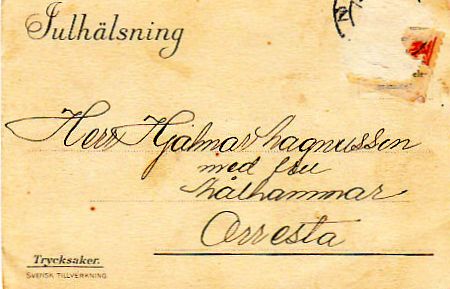 Julhälsning
Herr Hjalmar Magnusson
med fru
Målhammar
Orresta
Trycksaker.
SVENSK TILLVERKNING